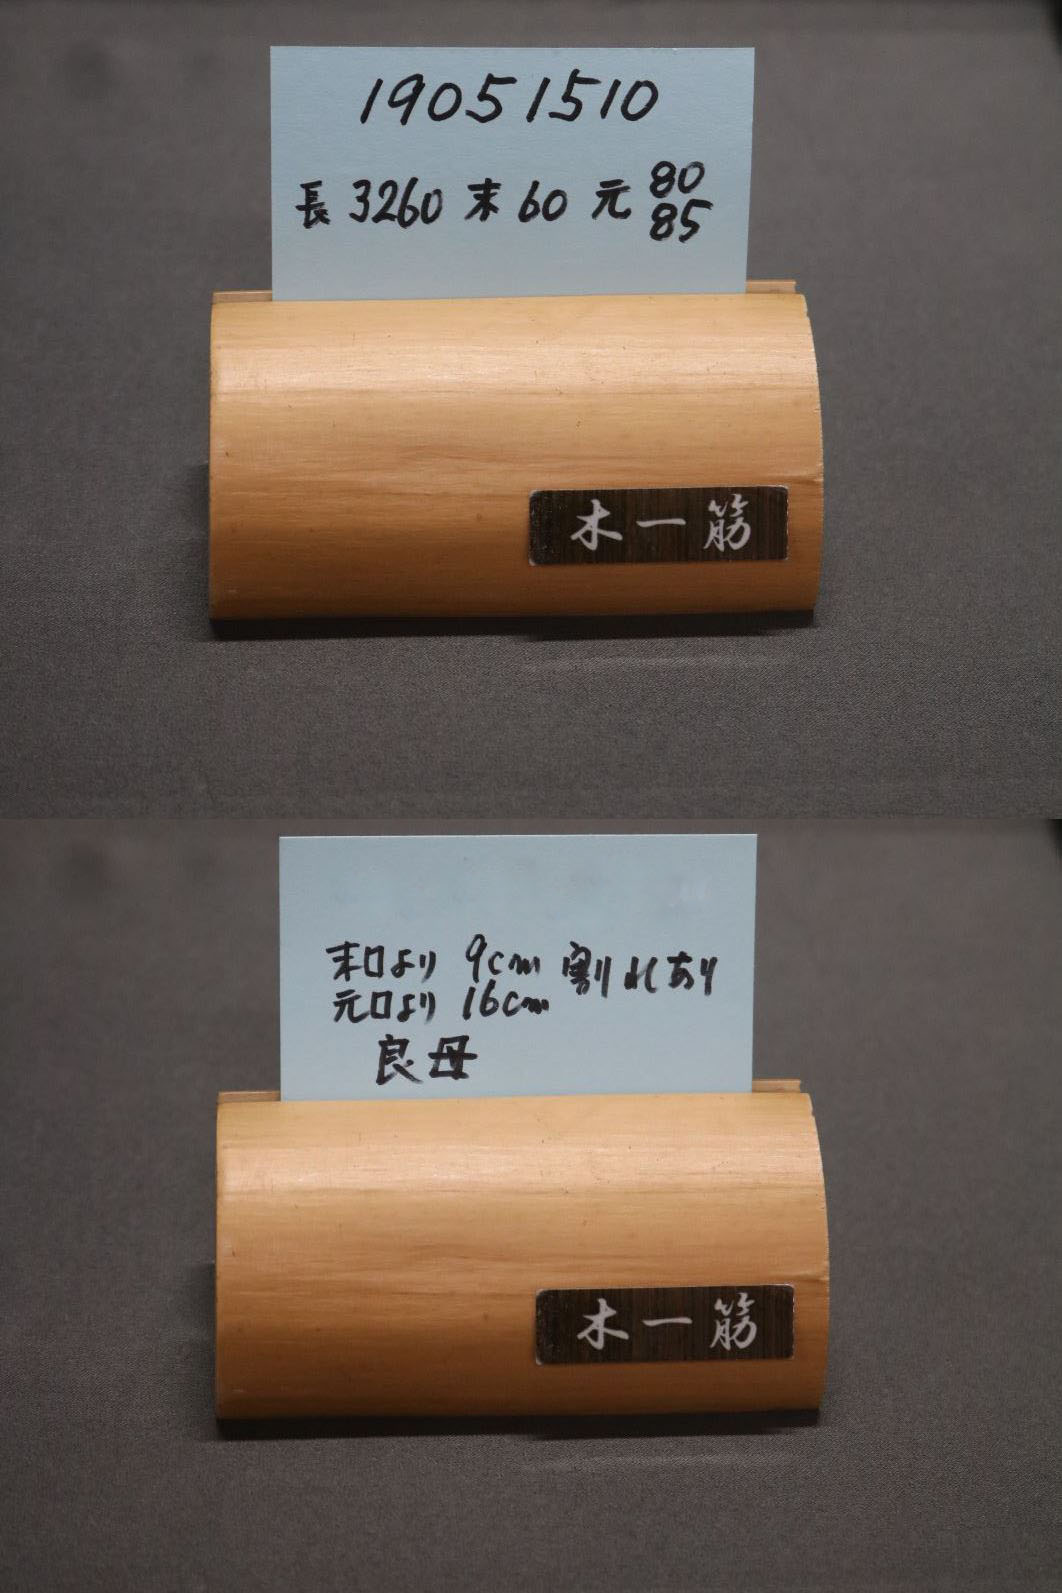 19051510
長 3260 末 60 元 80
85
木一筋
末口より 9cm 割れあり
元口より 16cm
良母
木一筋